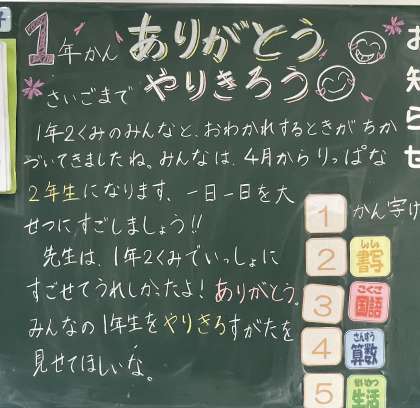 1年かん ありがとう
さいごまで やりきろう
1年2くみのみんなと、おわかれするときがちか
づいてきましたね。みんなは、4月からりっぱな
2年生になります、一日一日を大
せつにすごしましょう!!
先生は、1年2くみでいっしょに
すごせてうれしかったよ!ありがとう。
みんなの1年生をやりきるすがたを
見せてほしいな。
お知らせ
1 かん字け
2 しょしゃ 書写
3 こくご 国語
4 さんすう 算数
5 せいかつ 生活